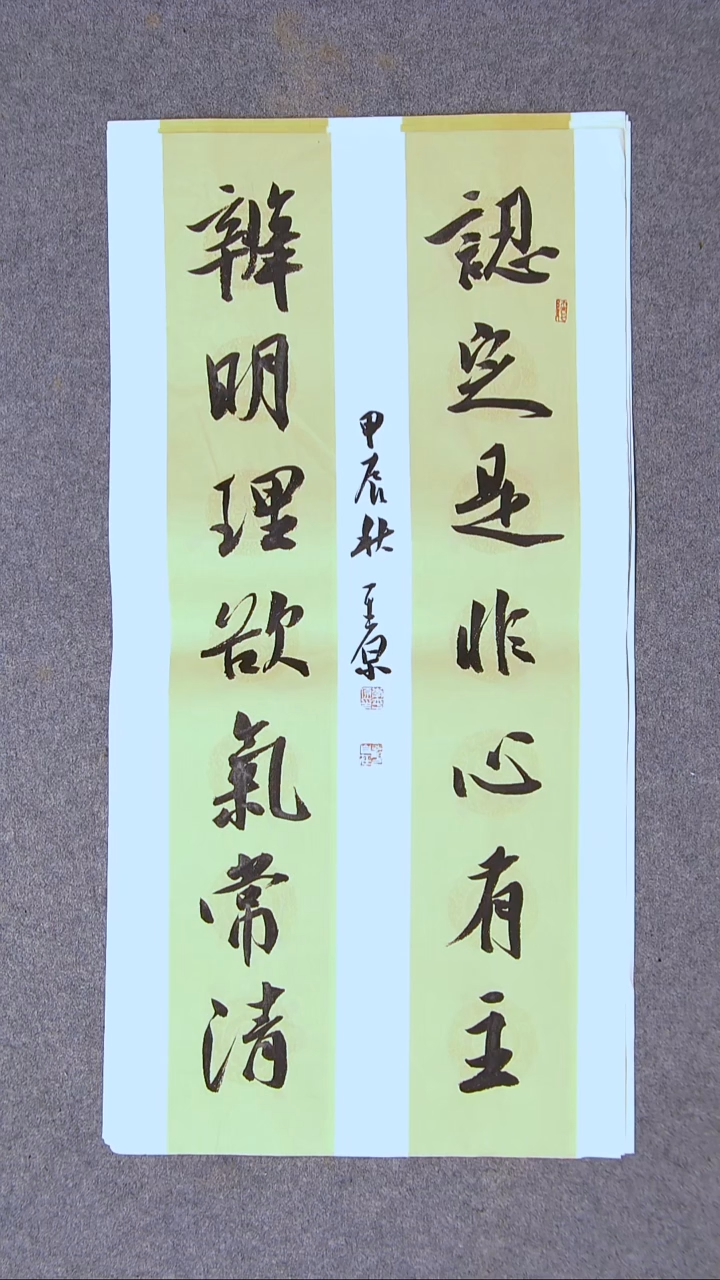 認定是非心有主
辦明理欲氣常清
甲辰秋